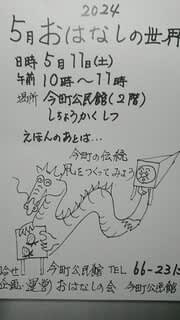 2024
5月おはなしの世界
日時 5月11日(土)
午前 10時〜11時
場所 今町公民館(2階)
しちょうかくしつ
えほんのあとは…
今町の伝統
凧をつくってみよう
合せ 今町公民館 TEL 66-23
企画・運営 おはなしの会 今町公民館